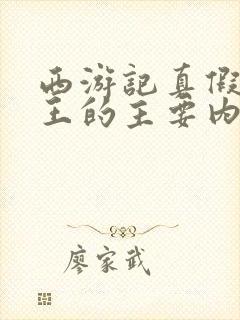 西游记真假
王的主要内
廖家武